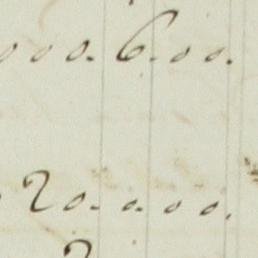 000.6.00.
20.000.